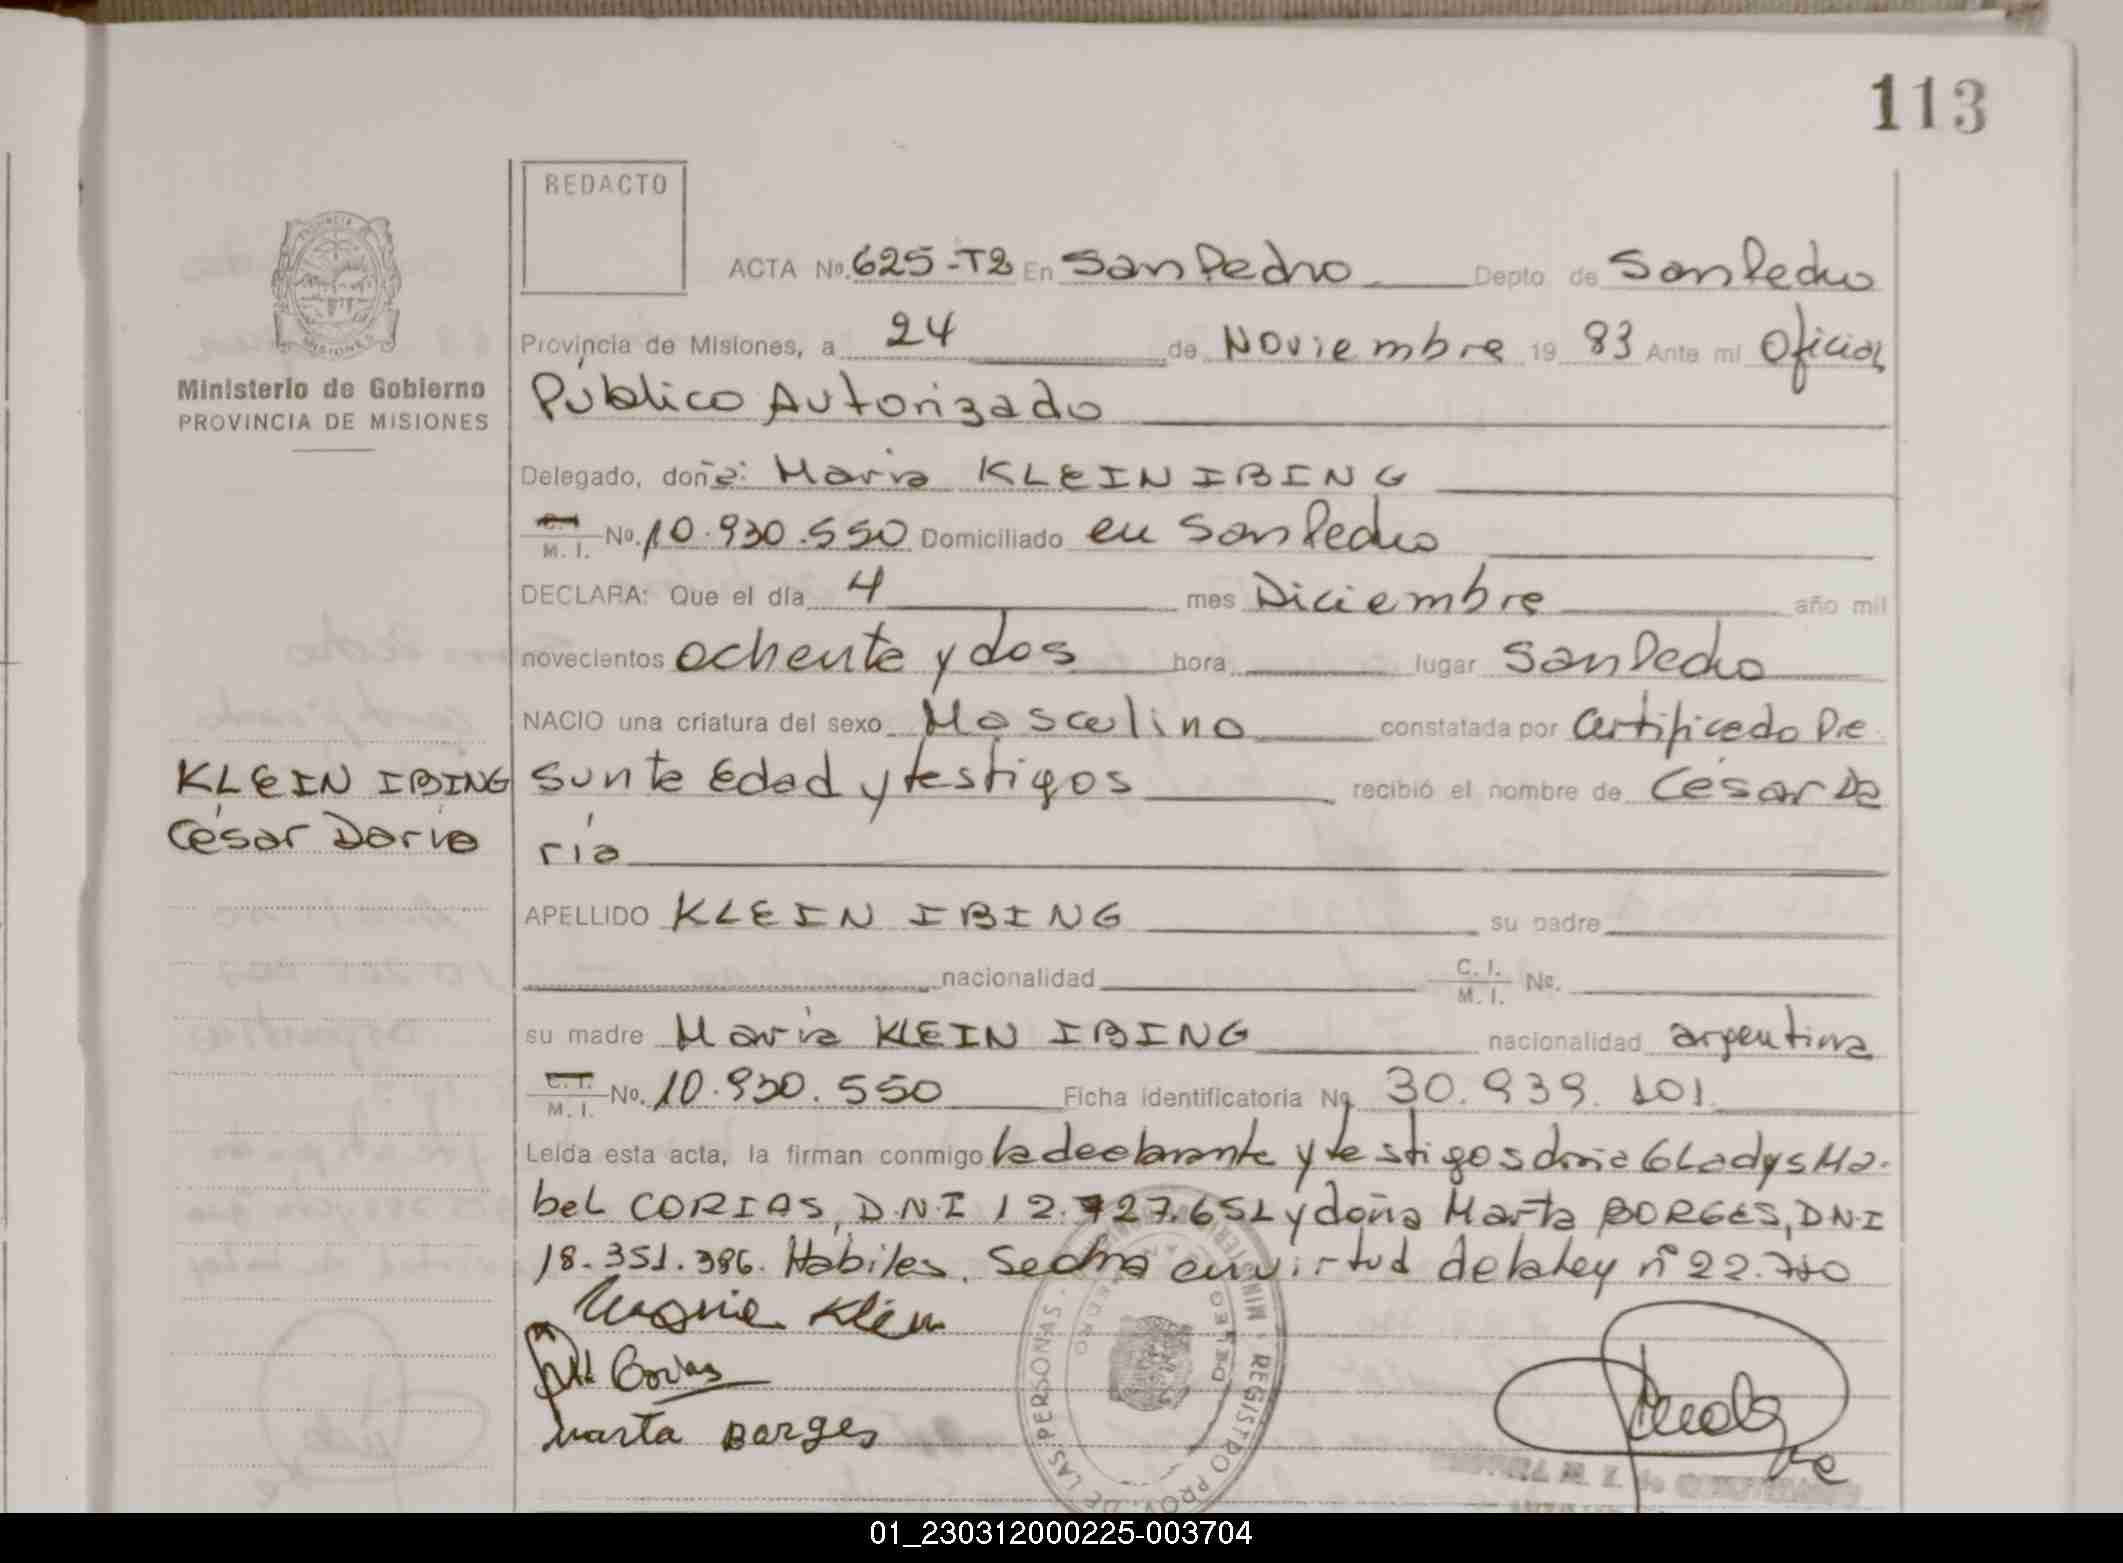 113
REDACTO
ACTA No. 625-T2 En San Pedro Depto de San Pedro
Provincia de Misiones, a 24 de Noviembre 19 83 Ante mi Oficial
Ministerio de Gobierno
PROVINCIA DE MISIONES
Público Autorizado
Delegado, doña: Maria KLEIN IBING
C. I. M. I. No. 10.930.550 Domiciliado en San Pedro
DECLARA: Que el día 4 mes Diciembre año mil
novecientos ochenta y dos hora lugar San Pedro
NACIO una criatura del sexo Masculino constatada por Certificado Pre
KLEIN IBING
César Dario
sunta Edad y testigos recibió el nombre de César Da
río
APELLIDO KLEIN IBING su padre
nacionalidad C. I. M. I. No.
su madre María KLEIN IBING nacionalidad argentina
C. I. M. I. No. 10.930.550 Ficha identificatoria No 30.939.101
Leída esta acta, la firman conmigo la declarante y testigos doña Gladys Ma-
bel CORIAS, D.N.I 12.727.651 y doña Marta BORGES, D.N.I
18.351.386. Hábiles. Se cha en virtud de la Ley nº 22.770
Maria Klein
Corias
Marta Borges
REGISTRO PROV. DE LAS PERSONAS
01_230312000225-003704